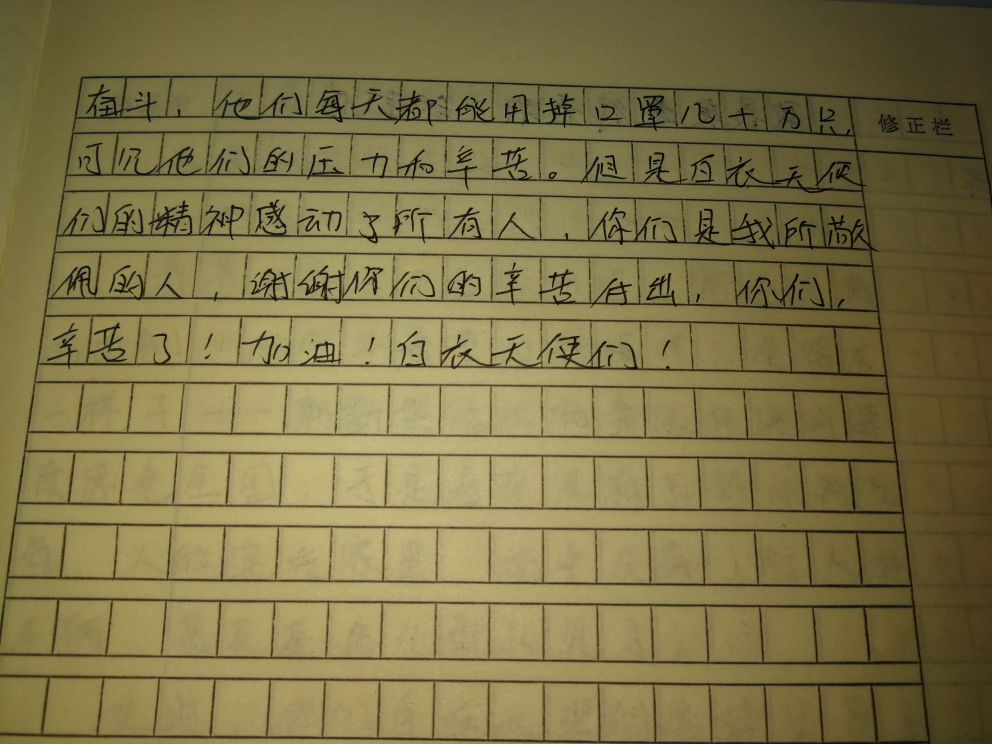 奋斗，他们每天都能用掉口罩几十万只，
修正栏
可见他们的压力和辛苦。但是白衣天使
们的精神感动了所有人，你们是我所敬
佩的人，谢谢你们的辛苦付出，你们，
辛苦了！加油！白衣天使们！